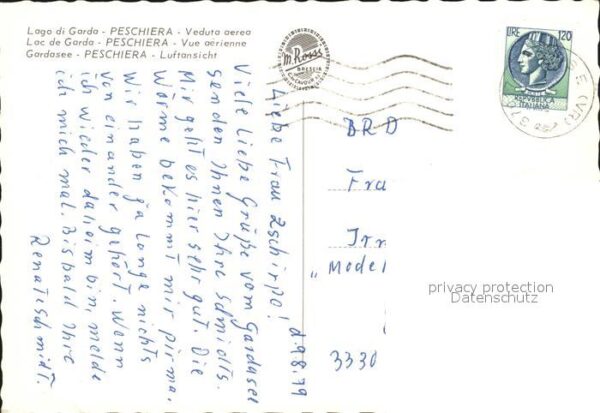 Lago di Garda - PESCHIERA - Veduta aerea
Lac de Garda - PESCHIERA - Vue aérienne
Gardasee - PESCHIERA - Luftansicht
m. Rossi
BRESCIA
LIRE 120
REPUBBLICA
ITALIANA
d. 9.8.79
Liebe Frau Zschirpo!
Viele Liebe Grüße vom Gardasee
senden Ihnen Ihre Schmidts.
Mir geht es hier sehr gut. Die
Wärme bekommt mir pirma,
Wir haben ja lange nichts
von einander gehört. Wenn
ich wieder daheim bin, melde
ich mich mal. Bis bald Ihre
Renate Schmidt.
BRD
Fra
Irm
"Model
3330
privacy protection
Datenschutz